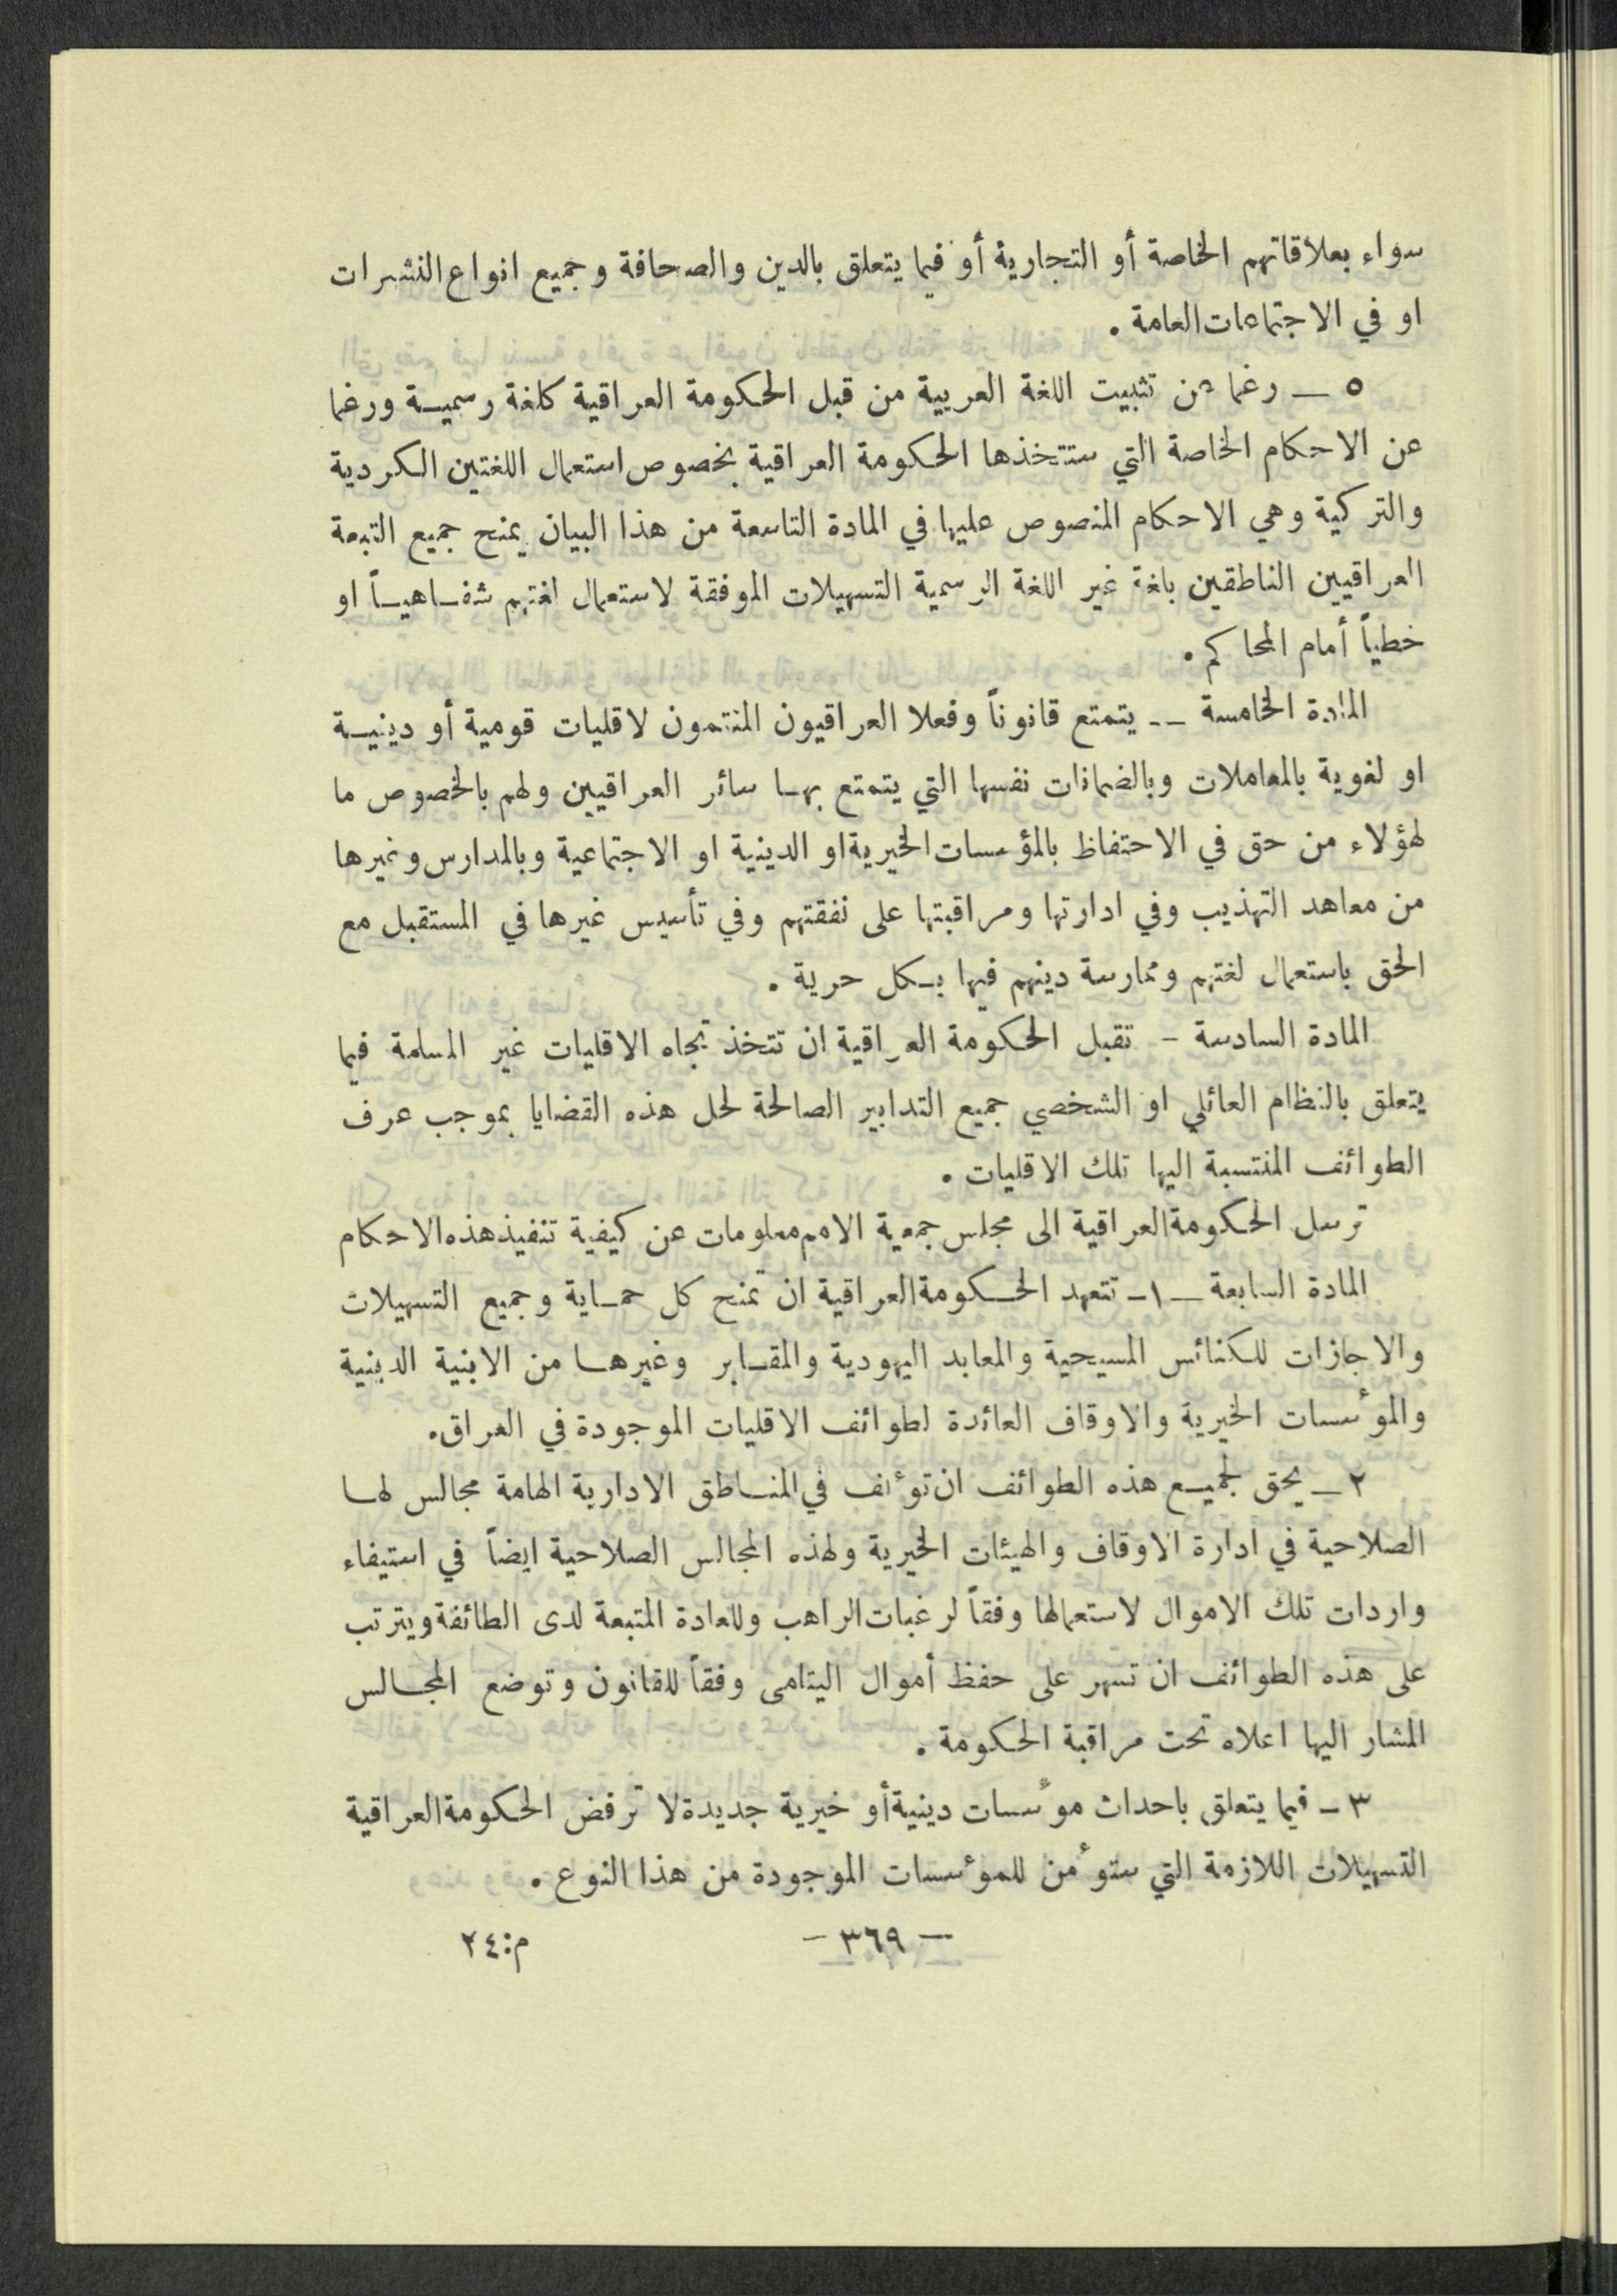 سواء بعلاقاتهم الخاصة أو التجارية أو فيما يتعلق بالدين والصحافة وجميع انواع النشرات
او في الاجتماعات العامة .
٥ ــ رغما عن تثبيت اللغة العربية من قبل الحكومة العراقية كلغة رسميـة ورغما
عن الاحكام الخاصة التي ستتخذها الحكومة العراقية بخصوص استعمال اللغتين الكردية
والتركية وهي الاحكام المنصوص عليها في المادة التاسعة من هذا البيان يمنح جميع التبعة
العراقيين الناطقين بلغة غير اللغة الرسمية التسهيلات الموفقة لاستعمال لغتهم شفـاهيـاً او
خطياً أمام المحاكم .
المادة الخامسة ــ يتمتع قانوناً وفعلا العراقيون المنتمون لاقليات قومية أو دينيـة
او لغوية بالمعاملات وبالضمانات نفسها التي يتمتع بهـا سائر العراقيين ولهم بالخصوص ما
لهؤلاء من حق في الاحتفاظ بالمؤسسات الخيرية او الدينية او الاجتماعية وبالمدارس وغيرها
من معاهد التهذيب وفي ادارتها ومراقبتها على نفقتهم وفي تأسيس غيرها في المستقبل مع
الحق باستعمال لغتهم وممارسة دينهم فيها بـكل حرية .
المادة السادسة - تقبل الحكومة العراقية ان تتخذ تجاه الاقليات غير المسلمة فيما
يتعلق بالنظام العائلي او الشخصي جميع التدابير الصالحة لحل هذه القضايا بموجب عرف
الطوائف المنتسبة اليها تلك الاقليات .
ترسل الحكومة العراقية الى مجلس جمعية الامم معلومات عن كيفية تنفيذ هذه الاحكام
المادة السابعة ــ ١ــ تتعهد الحـكومة العراقية ان تمنح كل حمـاية وجميع التسهيلات
والاجازات للكنائس المسيحية والمعابد اليهودية والمقـابر وغيرهـا من الابنية الدينية
والمؤسسات الخيرية والاوقاف العائدة لطوائف الاقليات الموجودة في العراق.
٢ ــ يحق لجميـع هذه الطوائف ان تؤلف في المنـاطق الادارية الهامة مجالس لهـا
الصلاحية في ادارة الاوقاف والهيئات الخيرية ولهذه المجالس الصلاحية ايضاً في استيفاء
واردات تلك الاموال لاستعمالها وفقاً لرغبات الراهب وللعادة المتبعة لدى الطائفة ويترتب
على هذه الطوائف ان تسهر على حفظ أموال اليتامى وفقاً للقانون وتوضع المجـالس
المشار اليها اعلاه تحت مراقبة الحكومة .
٣ ــ فيما يتعلق باحداث مؤسسات دينية أو خيرية جديدة لا ترفض الحكومة العراقية
التسهيلات اللازمة التي ستؤمن للمؤسسات الموجودة من هذا النوع .
— ٣٦٩ — م:٢٤